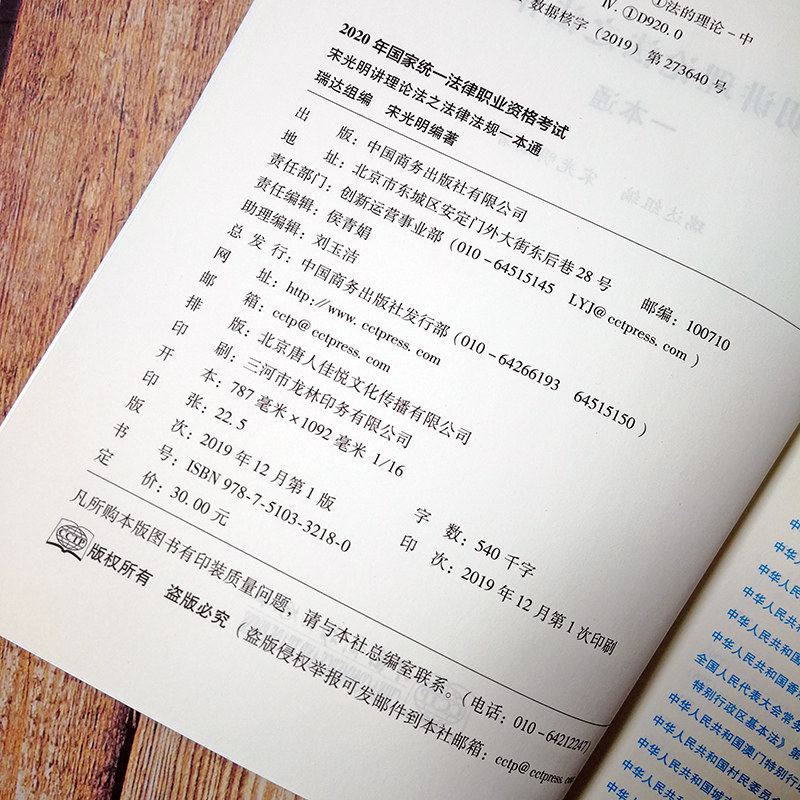 ①法的理论－中
Ⅳ. ①D920.0
数据核字（2019）第 273640 号
2020 年国家统一法律职业资格考试
宋光明讲理论法之法律法规一本通
瑞达组编　宋光明编著
出　　版：中国商务出版社有限公司
地　　址：北京市东城区安定门外大街东后巷 28 号　　邮编：100710
责任部门：创新运营事业部（010－64515145　LYJ@cctpress.com）
责任编辑：侯青娟
助理编辑：刘玉洁
总 发 行：中国商务出版社发行部（010－64266193　64515150）
网　　址：http://www.cctpress.com
邮　　箱：cctp@cctpress.com
排　　版：北京唐人佳悦文化传播有限公司
印　　刷：三河市龙林印务有限公司
开　　本：787 毫米×1092 毫米 1/16
印　　张：22.5　　字　　数：540 千字
版　　次：2019 年 12 月第 1 版　　印　　次：2019 年 12 月第 1 次印刷
书　　号：ISBN 978-7-5103-3218-0
定　　价：30.00 元
凡所购本版图书有印装质量问题，请与本社总编室联系。（电话：010-64212247）
CCTP 版权所有　盗版必究（盗版侵权举报可发邮件到本社邮箱：cctp@cctpress.com
中
中华人
中华人民
中华人民共
中华人民共和
中华人民共和国
中华人民共和国香
全国人民代表大会常务
特别行政区基本法》第
中华人民共和国澳门特别行
中华人民共和国村民委员
中华人民共和国城